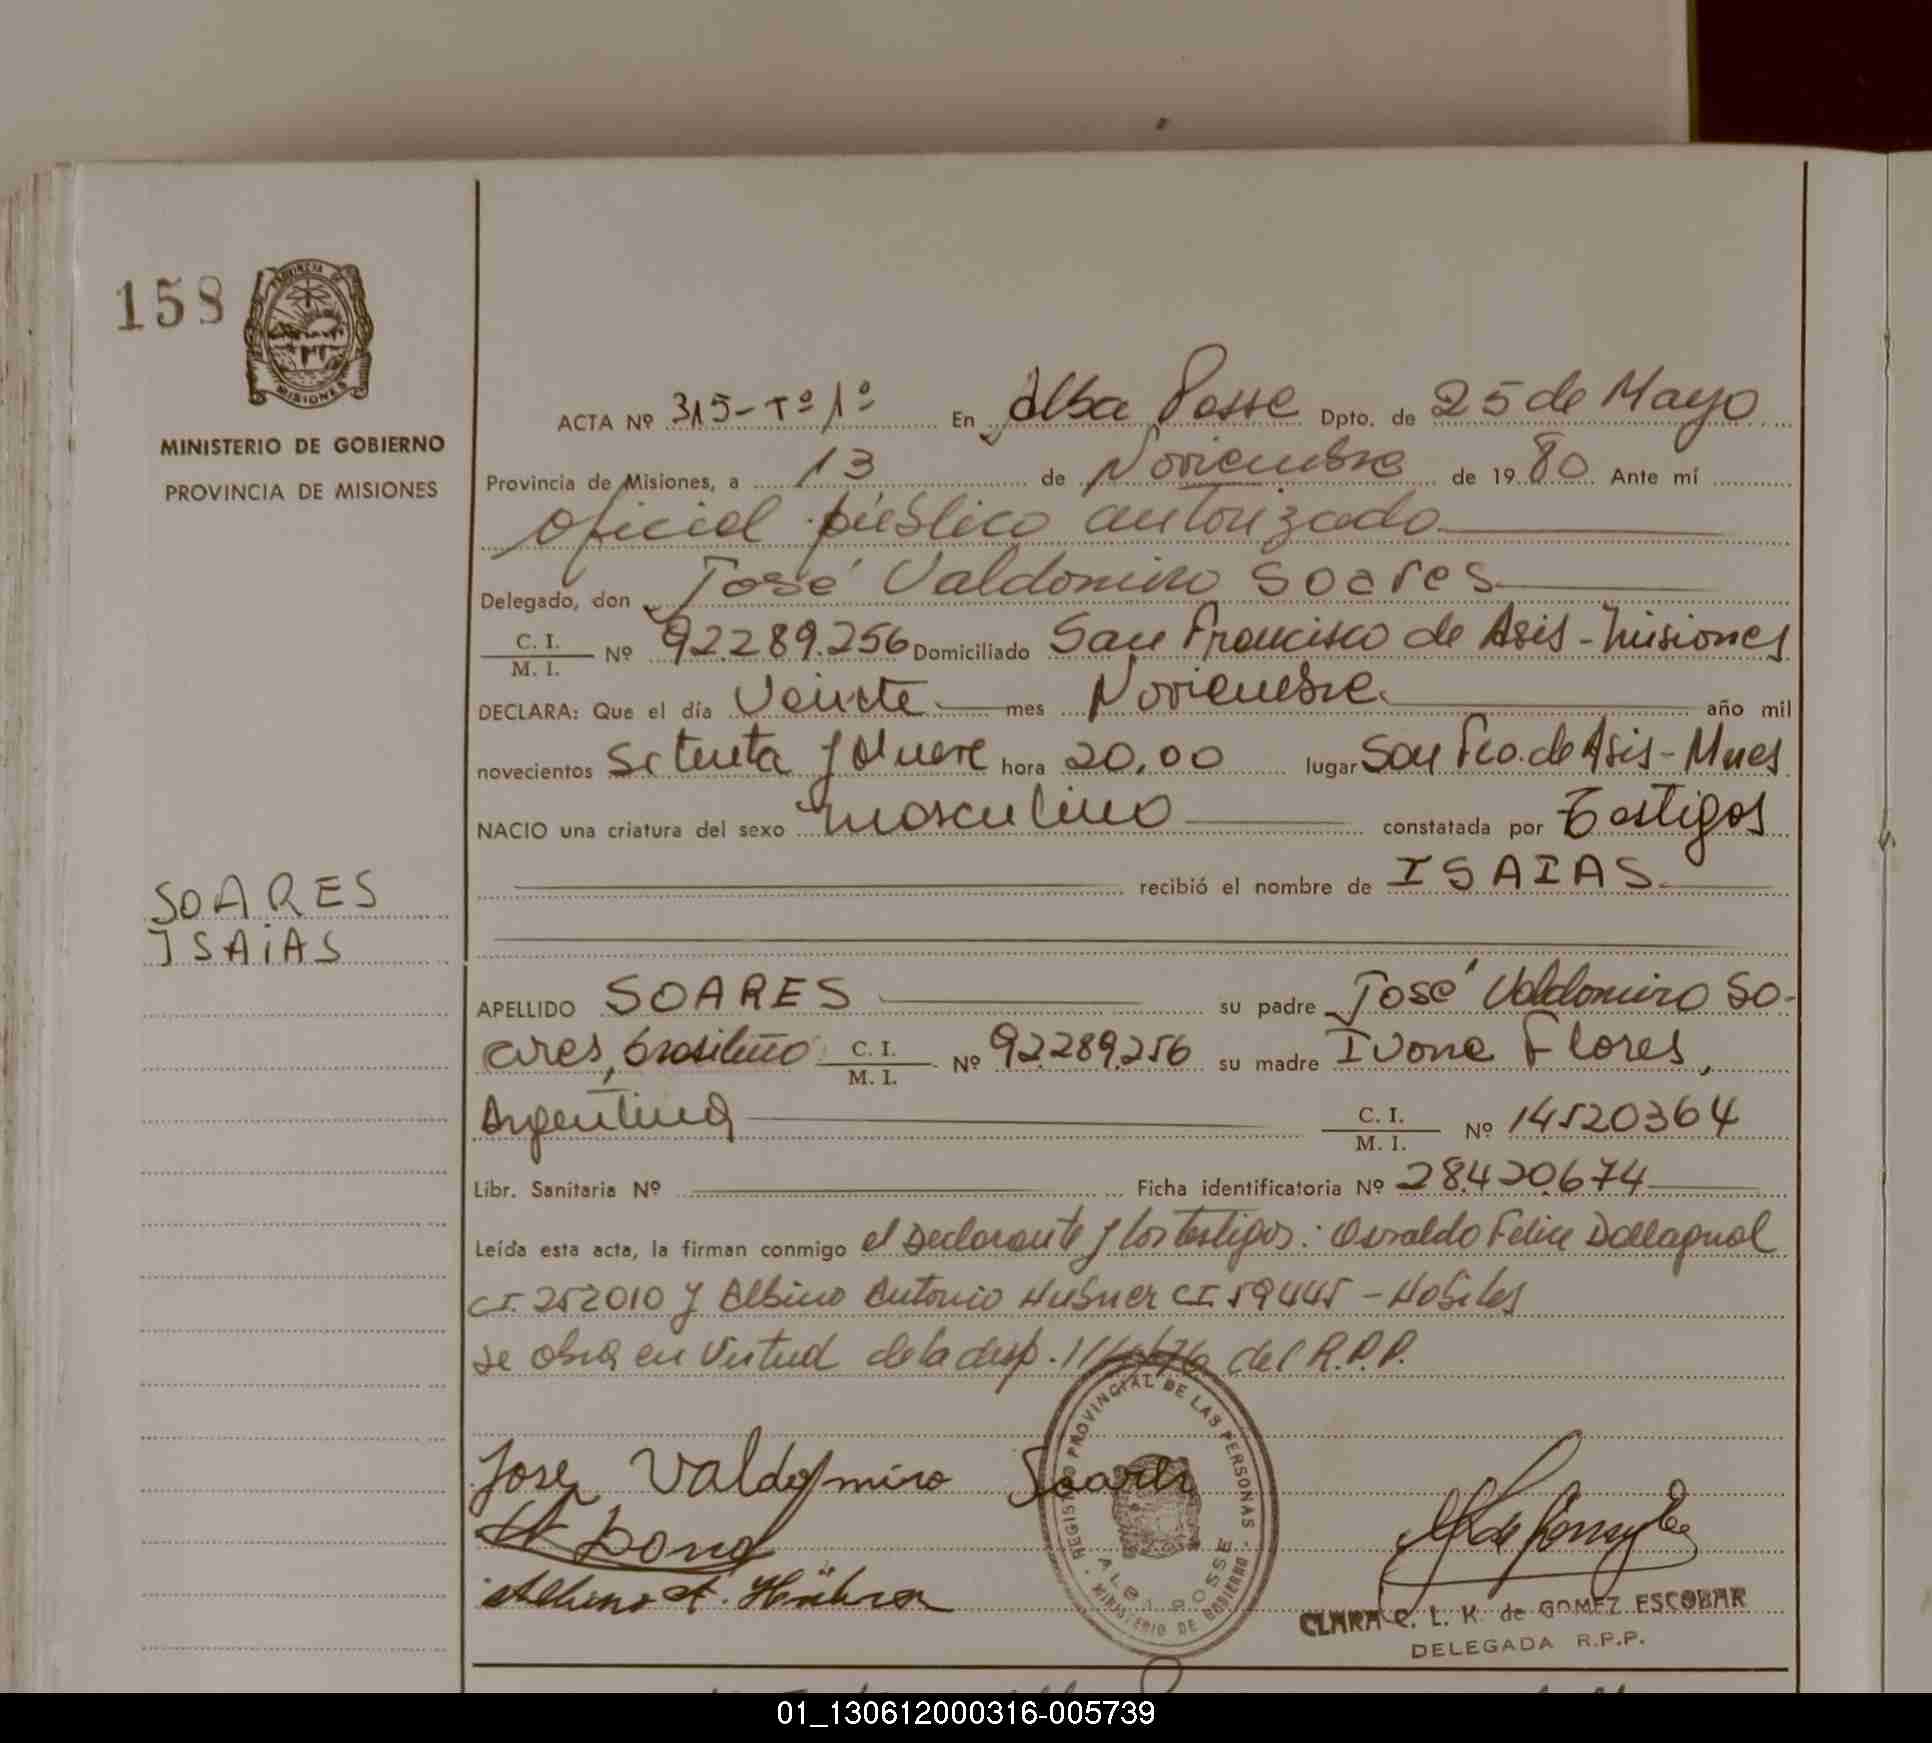 158
PROVINCIA DE
MISIONES
MINISTERIO DE GOBIERNO
PROVINCIA DE MISIONES
SOARES
ISAIAS
ACTA Nº 315-Tº 1º En Alba Posse Dpto. de 25 de Mayo
Provincia de Misiones, a 13 de Noviembre de 1980 Ante mí
oficial público autorizado
Delegado, don José Valdomiro Soares
C. I. / M. I. Nº 92.289.256 Domiciliado San Francisco de Asis - Misiones
DECLARA: Que el día Veinte mes Noviembre año mil
novecientos Setenta y Nueve hora 20,00 lugar San Fco. de Asis - Mnes
NACIO una criatura del sexo masculino constatada por Testigos
recibió el nombre de ISAIAS
APELLIDO SOARES su padre José Valdomiro So-
ares, brasileño C. I. / M. I. Nº 92.289.256 su madre Ivone Flores,
Argentina C. I. / M. I. Nº 14520364
Libr. Sanitaria Nº Ficha identificatoria Nº 28.420.674
Leída esta acta, la firman conmigo el Declarante y los testigos: Osvaldo Felice Dallagnol
CI. 252010 y Albino Antonio Hubner CI 59445 - Habiles
se obra en Virtud de la desp. del R.P.P.
Jose Valdomiro Soares
REGISTRO PROVINCIAL DE LAS PERSONAS
ALBA POSSE
MINISTERIO DE GOBIERNO
CLARA C. L. K. de GOMEZ ESCOBAR
DELEGADA R.P.P.
01_130612000316-005739